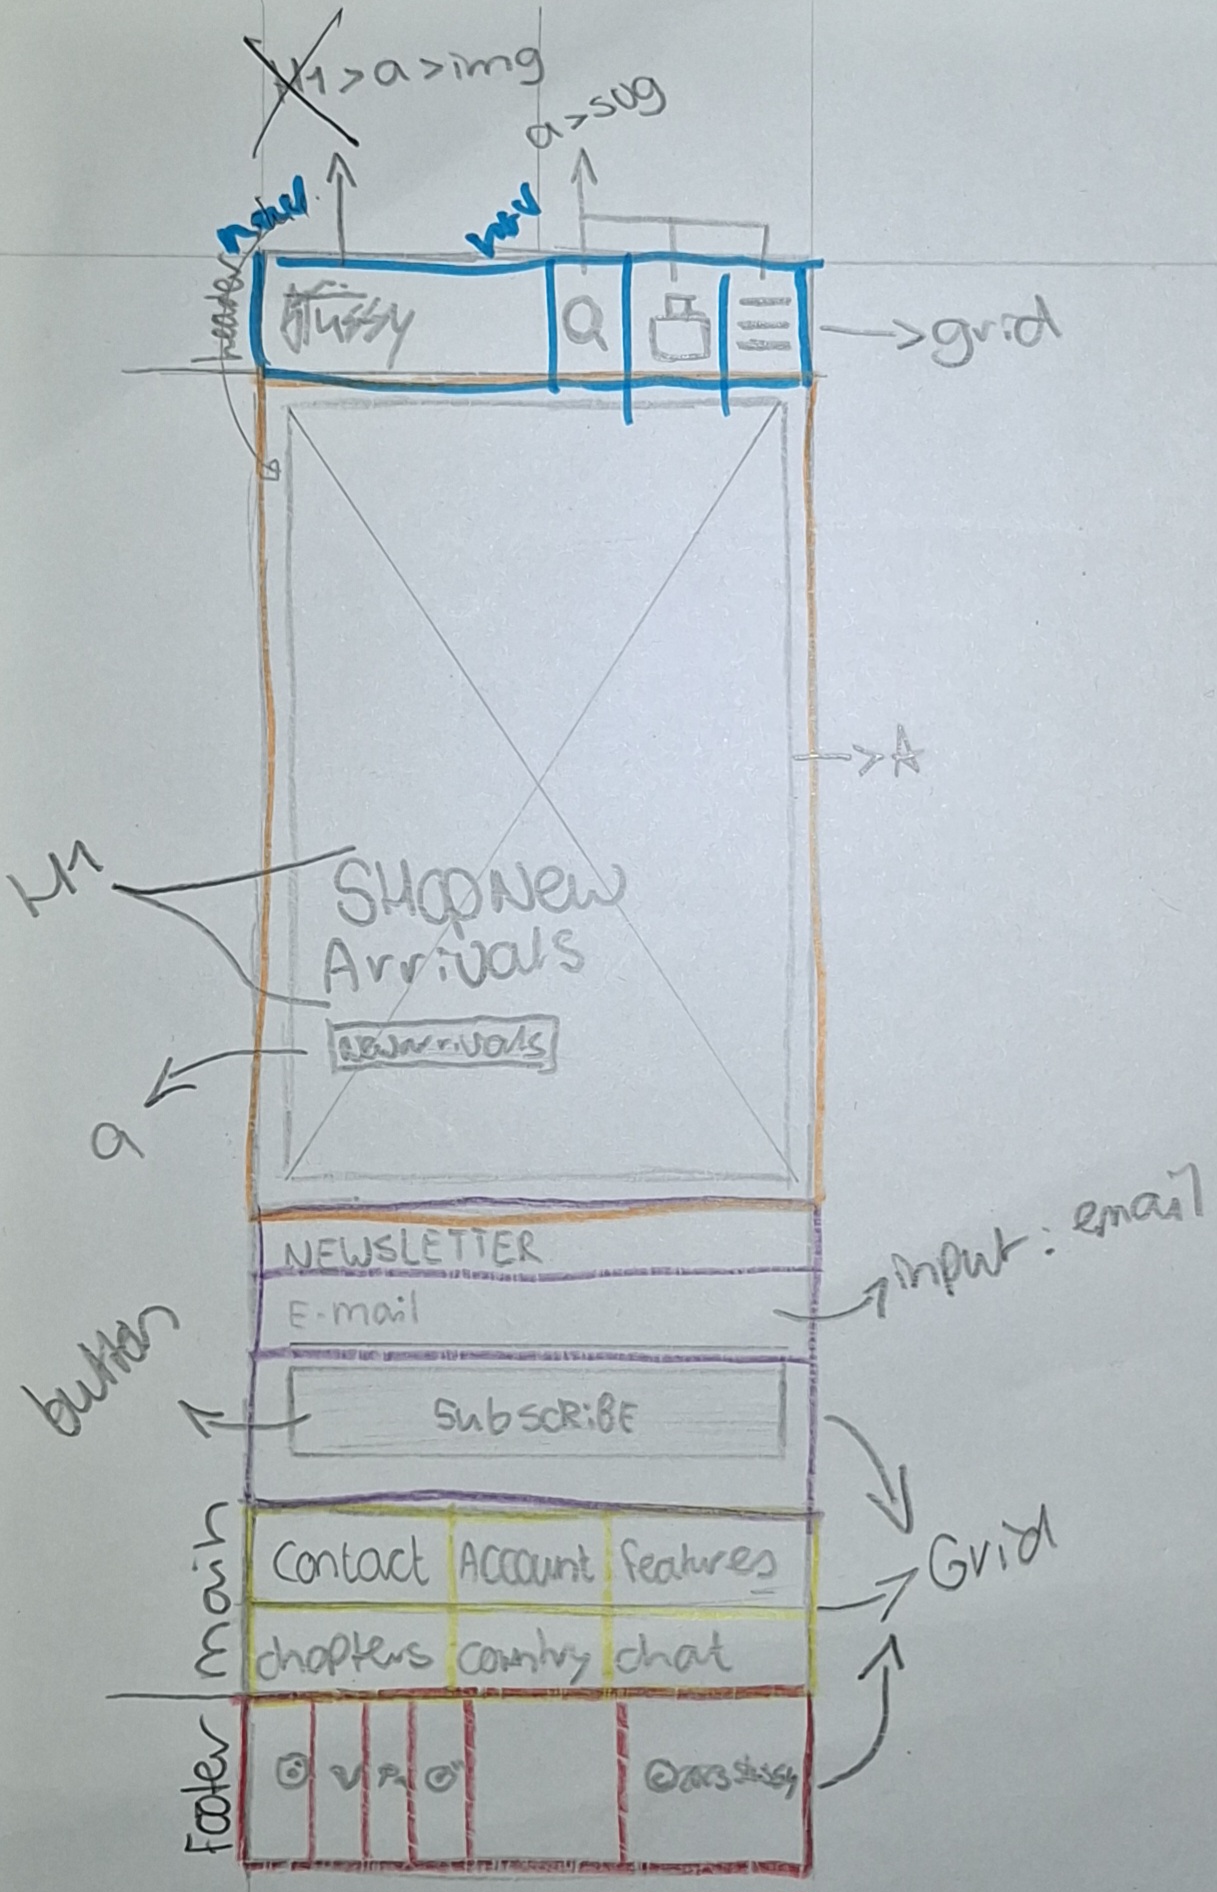 H1 > a > img
a > svg
nav
header
Stüssy
→ grid
→ A
H1
SHOP New
Arrivals
New arrivals
a
NEWSLETTER
E-mail
input: email
button
SUbSCRiBE
main
Contact Account features
Grid
chapters Country chat
Footer
©2023 Stüssy